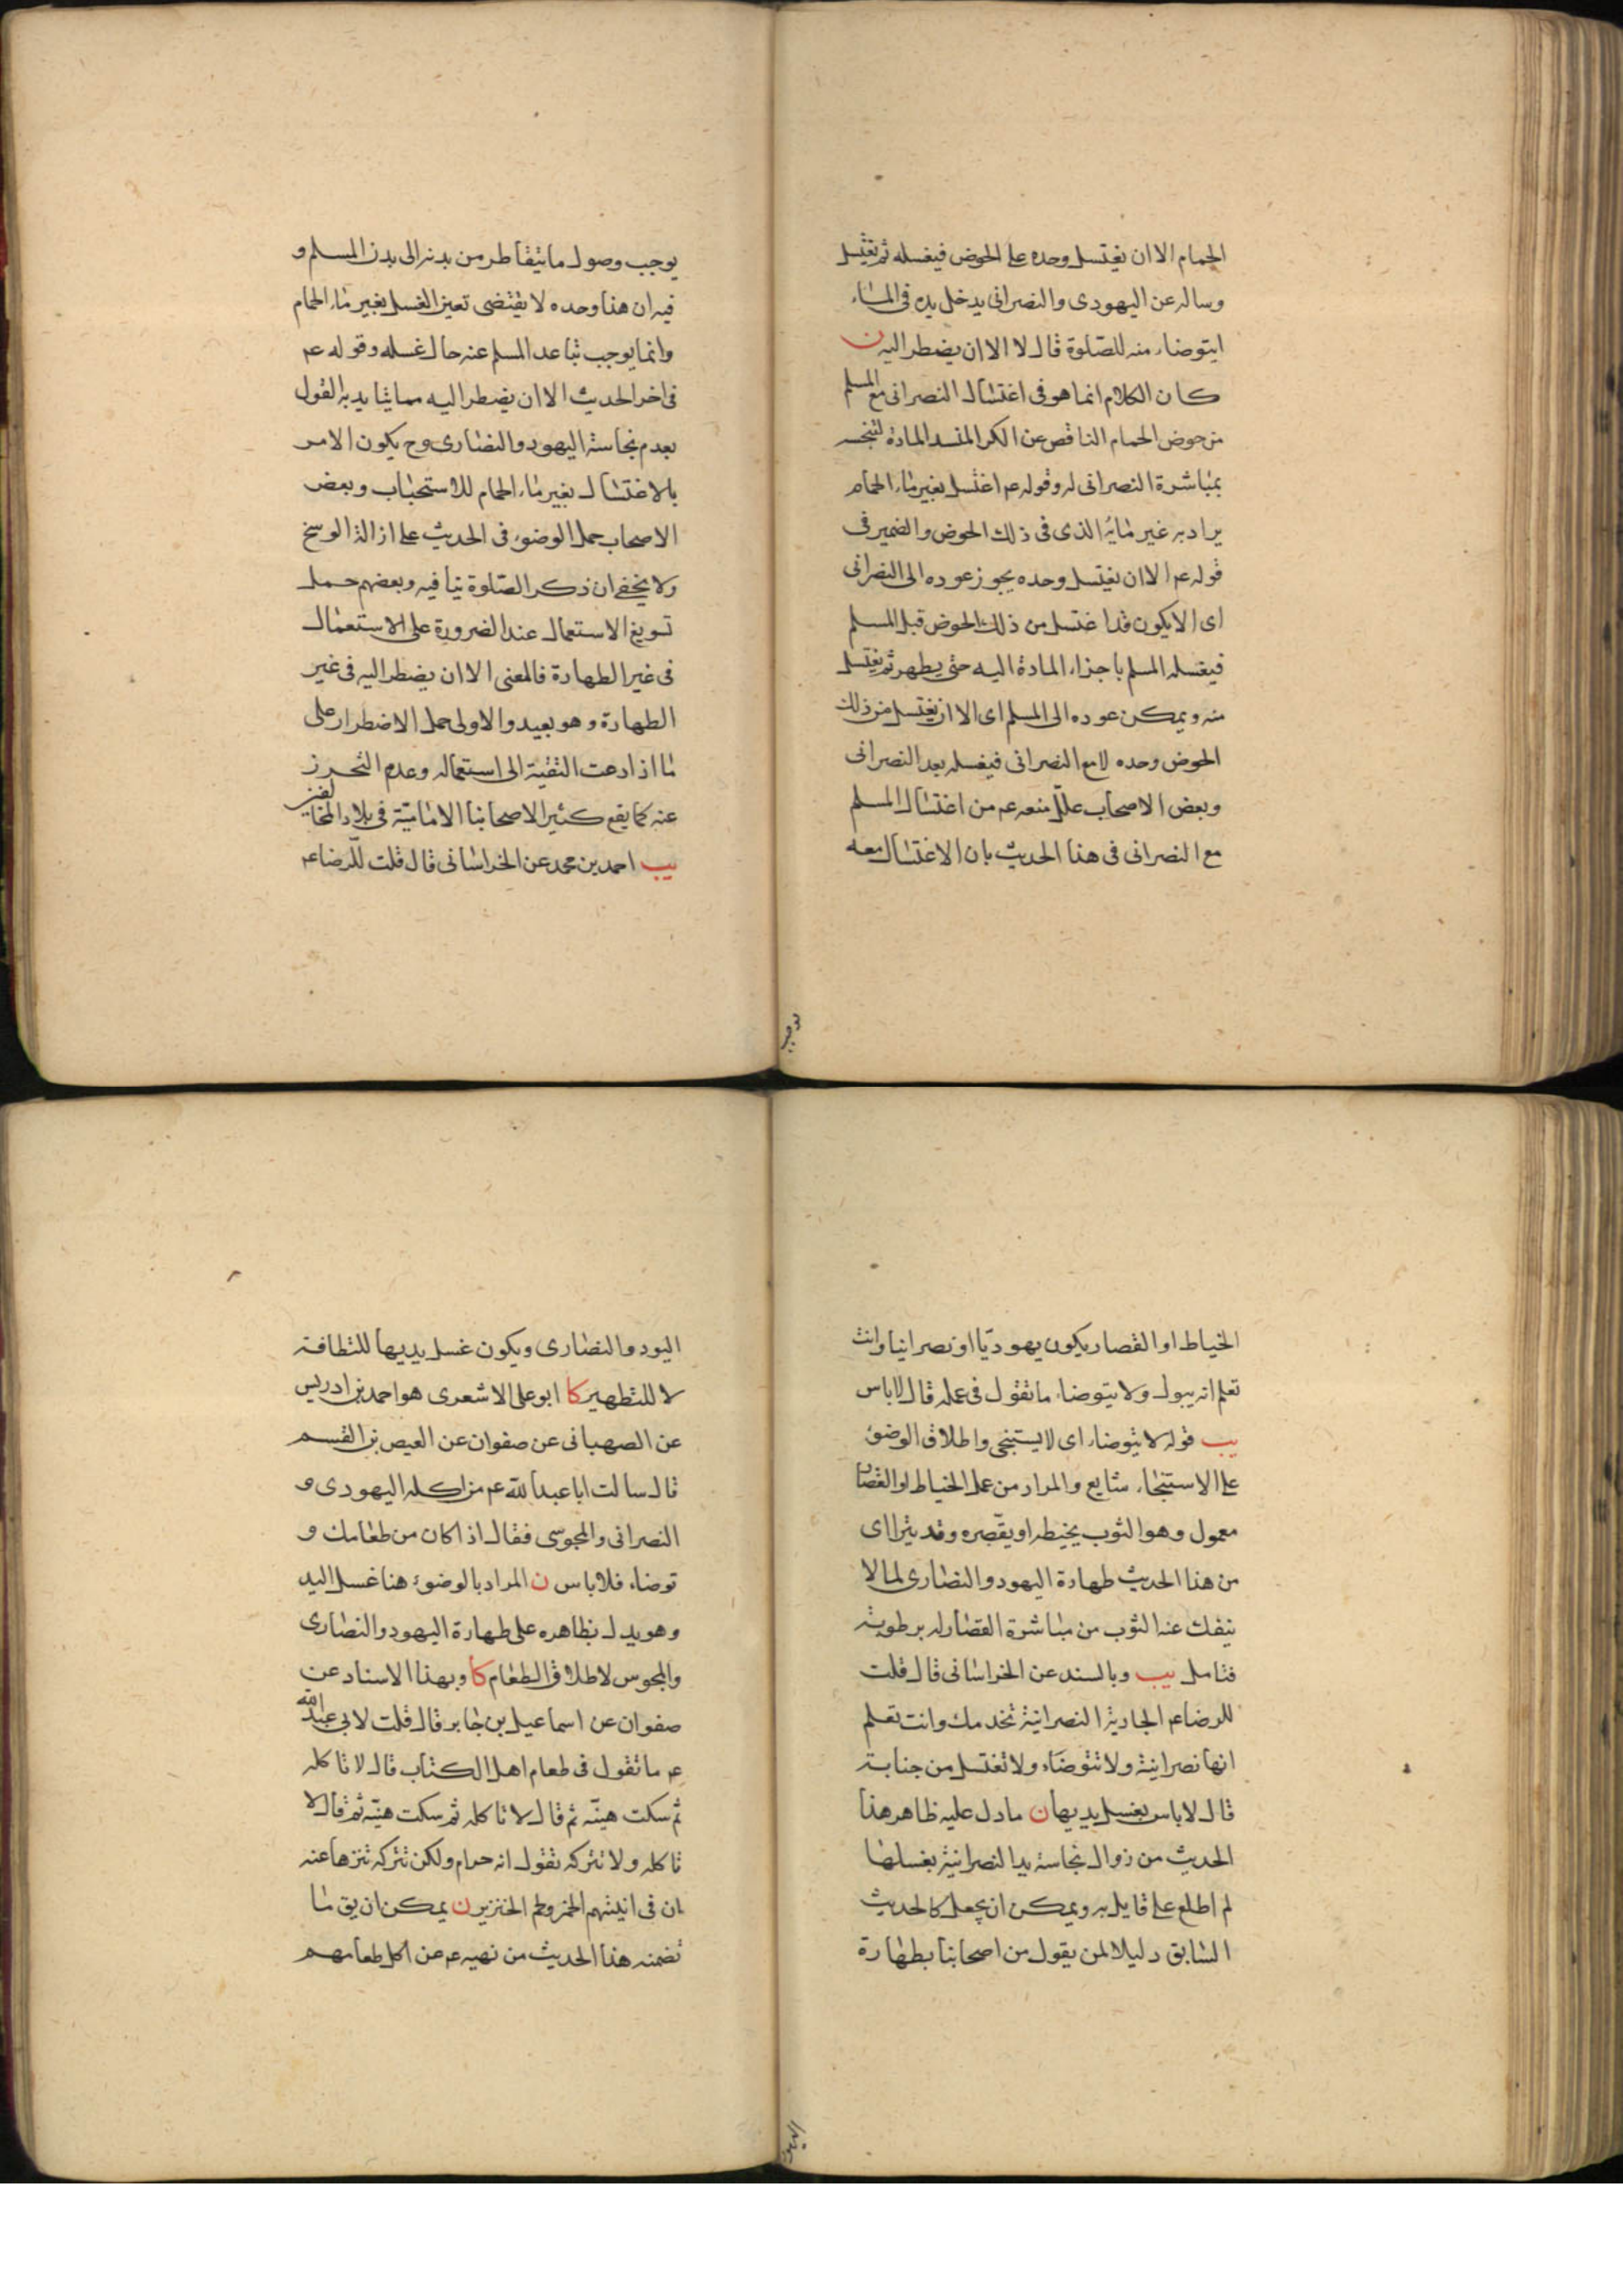 الحمام الا ان يغتسل وحده على الحوض فيغسله ثم يغتسل
وساله عن اليهودى والنصرانى يدخل يده فى الماء
ايتوضاء منه للصلوة قال لا الا ان يضطر اليه ن
كان الكلام انما هو فى اغتسال النصرانى مع المسلم
من حوض الحمام الناقص عن الكر المنسد المادة لتنجسه
بمباشرة النصرانى له وقوله عم اغتسل بغير ماء الحمام
يراد به غير مائه الذى فى ذلك الحوض والضمير فى
قوله عم الا ان يغتسل وحده يجوز عوده الى النصرانى
اى الا يكون قد اغتسل من ذلك الحوض قبل المسلم
فيغسله المسلم باجزاء المادة اليه حتى يطهر ثم يغتسل
منه ويمكن عوده الى المسلم اى الا ان يغتسل من ذلك
الحوض وحده لا مع النصرانى فيغسله بعد النصرانى
وبعض الاصحاب علل منعه عم من اغتسال المسلم
مع النصرانى فى هذا الحديث بان الاغتسال معه
يوجب
يوجب وصول ما يتقاطر من بدنه الى بدن المسلم و
فيه ان هذا وحده لا يقتضى تعين الغسل بغير ماء الحمام
وانما يوجب تباعد المسلم عنه حال غسله وقوله عم
فى اخر الحديث الا ان يضطر اليه مما يتايد به القول
بعدم نجاسة اليهود والنصارى وح يكون الامر
بالاغتسال بغير ماء الحمام للاستحباب وبعض
الاصحاب حمل الوضوء فى الحديث على ازالة الوسخ
ولا يخفى ان ذكر الصلوة ينافيه وبعضهم حمل
تسويغ الاستعمال عند الضرورة على الاستعمال
فى غير الطهارة فالمعنى الا ان يضطر اليه فى غير
الطهارة وهو بعيد والاولى حمل الاضطرار على
ما اذا دعت التقية الى استعماله وعدم التحرز
عنه كما يقع كثيرا لاصحابنا الامامية فى بلاد المخالفين
يب احمد بن محمد عن الخراسانى قال قلت للرضا عم
الخياط او القصار يكون يهوديا او نصرانيا وانت
تعلم انه يبول ولا يتوضاء ما تقول فى عمله قال لا باس
يب قوله لا يتوضاء اى لا يستنجى واطلاق الوضوء
على الاستنجاء شايع والمراد من عمل الخياط او القصار
معمول وهو الثوب يخيطه او يقصره وقد يترااى
من هذا الحديث طهارة اليهود والنصارى لما لا
ينفك عنه الثوب من مباشرة القصار له برطوبة
فتامل يب وبالسند عن الخراسانى قال قلت
للرضا عم الجارية النصرانية تخدمك وانت تعلم
انها نصرانية ولا تتوضاء ولا تغتسل من جنابة
قال لا باس بغسل يديها ن ما دل عليه ظاهر هذا
الحديث من زوال نجاسة يد النصرانية بغسلها
لم اطلع على قايل به ويمكن ان يجعل كالحديث
السابق دليلا لمن يقول من اصحابنا بطهارة
اليود والنصارى ويكون غسل يديها للنظافة
لا للتطهير كا ابو على الاشعرى هو احمد بن ادريس
عن الصهبانى عن صفوان عن العيص بن القسم
قال سالت ابا عبد الله عم من اكله اليهودى و
النصرانى والمجوسى فقال اذا كان من طعامك و
توضاء فلا باس ن المراد بالوضوء هنا غسل اليد
وهو يدل بظاهره على طهارة اليهود والنصارى
والمجوس لاطلاق الطعام كا وبهذا الاسناد عن
صفوان عن اسماعيل بن جابر قال قلت لابى عبد الله
عم ما تقول فى طعام اهل الكتاب قال لا تاكله
ثم سكت هنيئه ثم قال لا تاكله ثم سكت هنيئه ثم قال لا
تاكله ولا تتركه تقول انه حرام ولكن تتركه تنزها عنه
ان فى انيتهم الخمر ولحم الخنزير ن يمكن ان يق ما
تضمنه هذا الحديث من نهيه عم عن اكل طعامهم